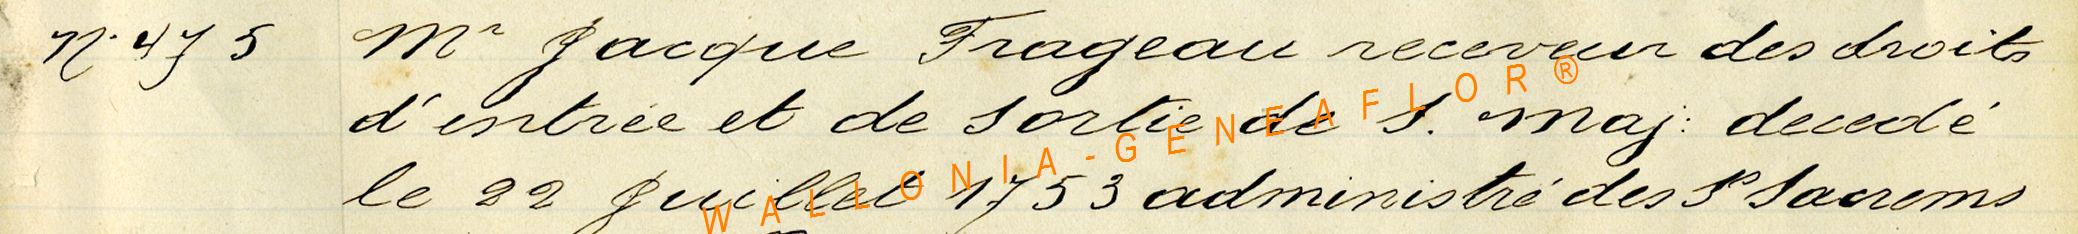 N. 475 Mr Jacque Frageau receveur des droits
d'entrée et de Sortie de S. Maj: decedé
le 22 Juillet 1753 administré des Ss Sacrems
WALLONIA-GENEAFLOR®